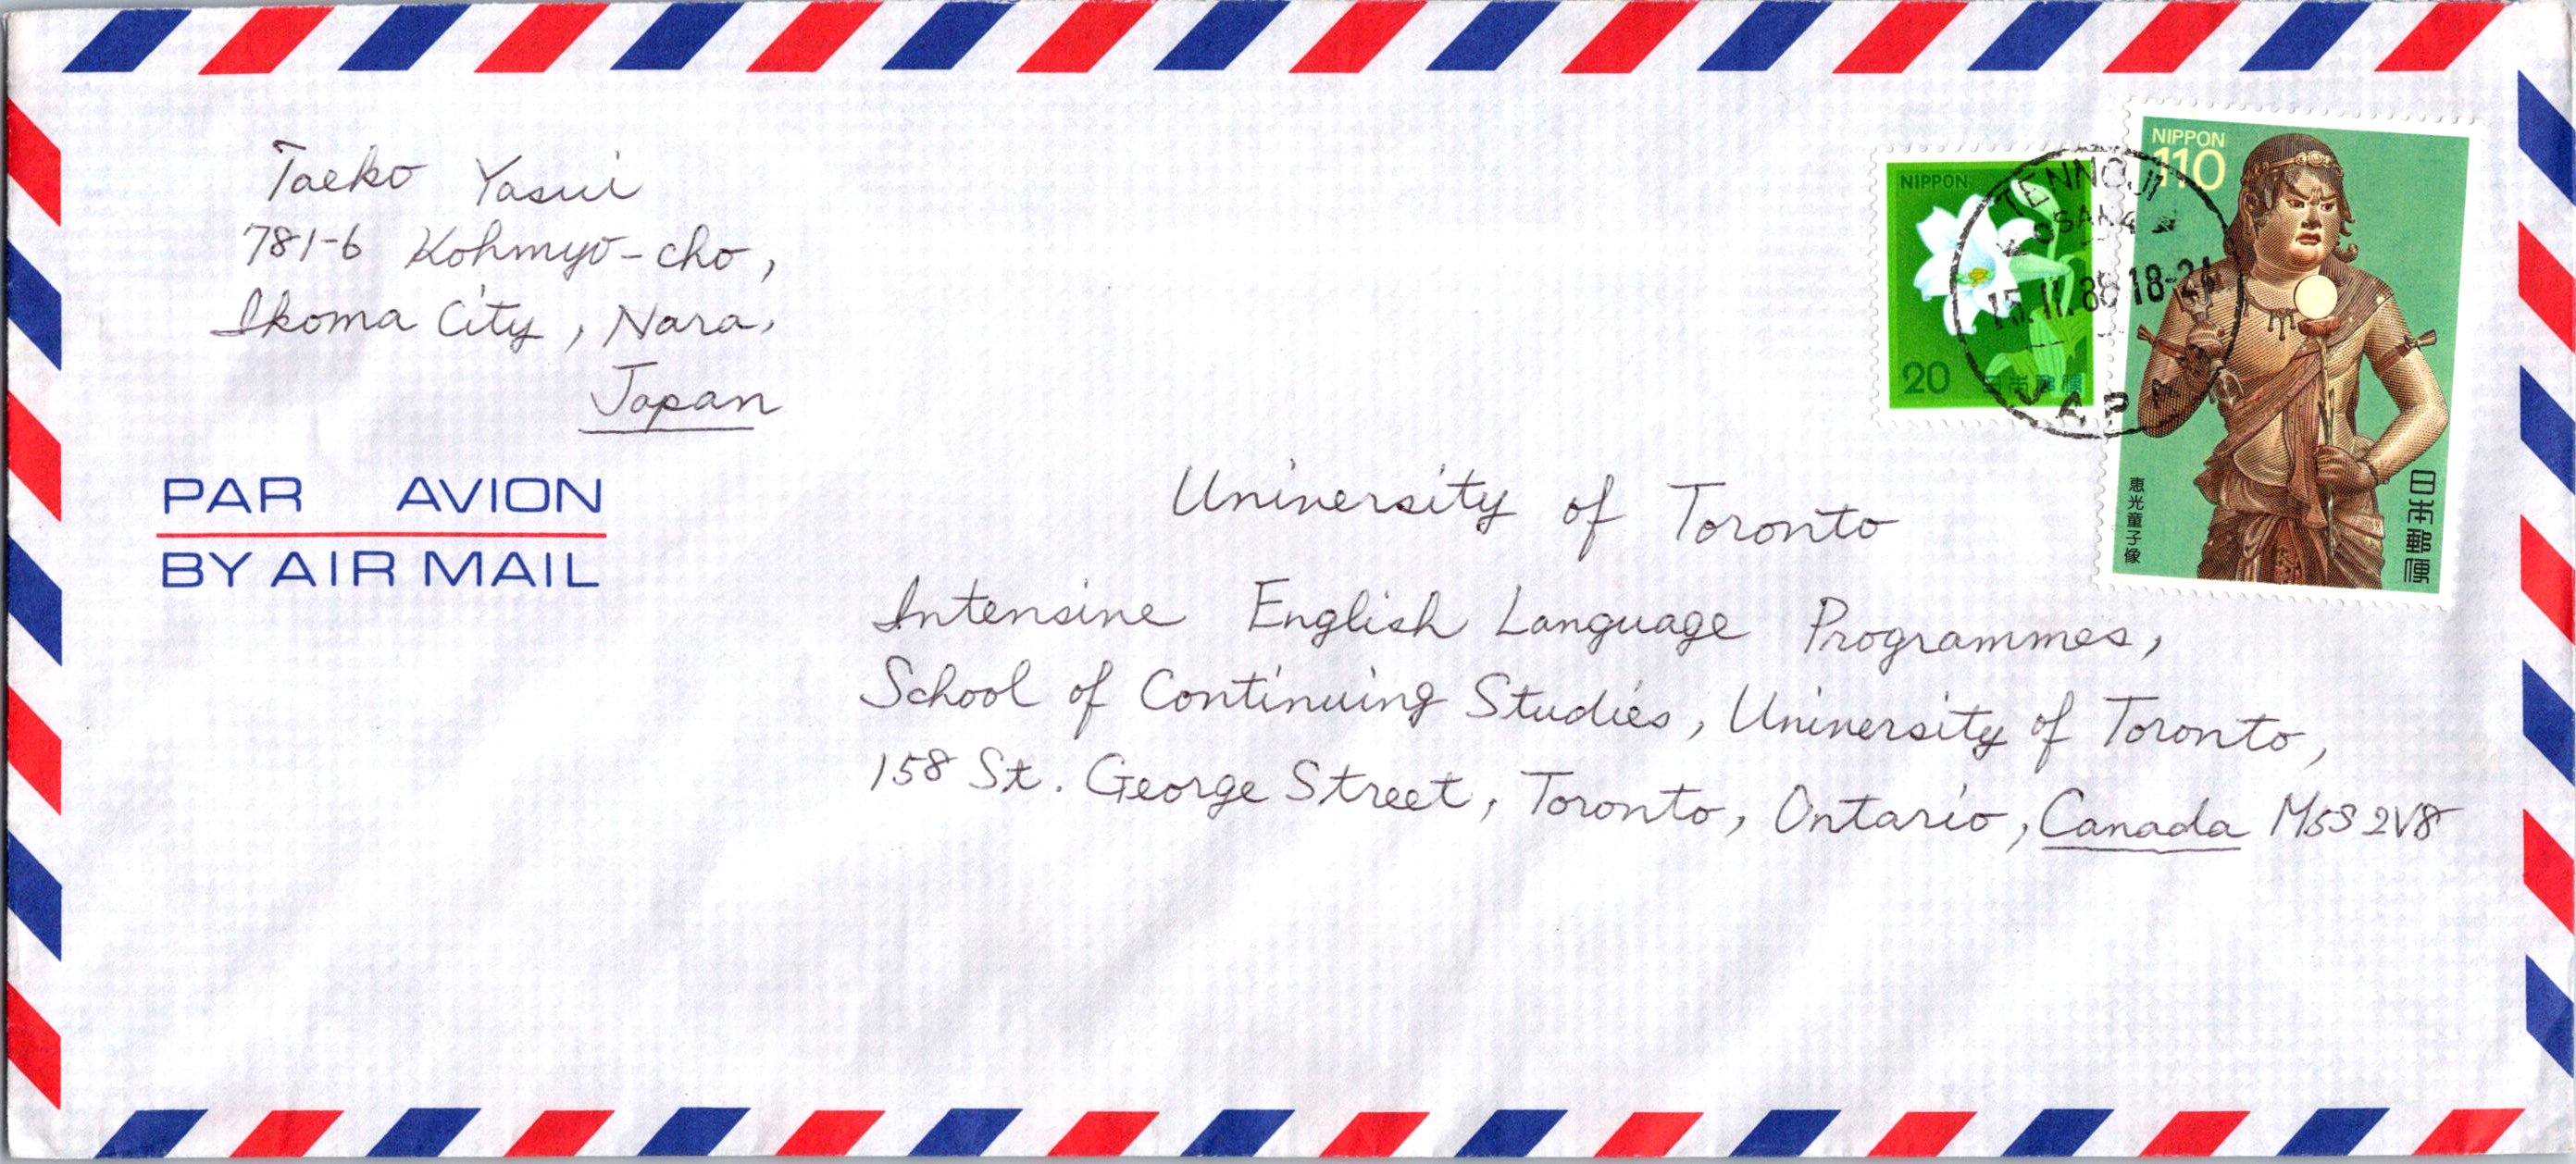 Taeko Yasui
781-6 Kohmyo-cho,
Ikoma City, Nara,
Japan
PAR AVION
BY AIR MAIL
NIPPON
20
日本郵便
NIPPON
110
恵光童子像
日本郵便
TENNOJI
OSAKA
15.II.88 18-24
JAPAN
University of Toronto
Intensive English Language Programmes,
School of Continuing Studies, University of Toronto,
158 St. George Street, Toronto, Ontario, Canada M5S 2V8